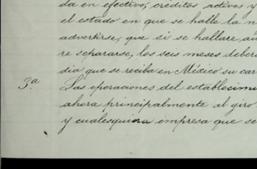 da en efectivo, créditos activos y
el estado en que se halle la n
advertirse, que si se hallare au
re separarse, los seis meses deber
dia que se reciba en México su car
3ª Las operaciones del establecimi
ahora principalmente al giro
y cualesquiera empresa que se